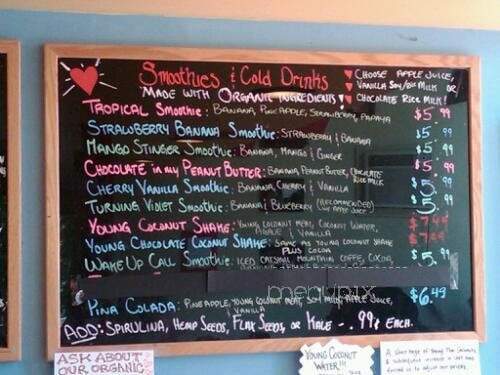 Smoothies & Cold Drinks
MADE WITH ORGANIC INGREDIENTS!
♥ CHOOSE APPLE JUICE,
♥ VANILLA SOY/RICE MILK OR
♥ CHOCOLATE RICE MILK!
TROPICAL Smoothie: BANANA, PINEAPPLE, STRAWBERRY, PAPAYA $5.99
STRAWBERRY BANANA Smoothie: STRAWBERRY & BANANA $5.99
MANGO STINGER Smoothie: BANANA, MANGO & GINGER $5.99
CHOCOLATE in my PEANUT BUTTER: BANANA, PEANUT BUTTER, CHOCOLATE RICE MILK $5.99
CHERRY VANILLA Smoothie: BANANA, CHERRY & VANILLA $5.99
TURNING VIOLET Smoothie: BANANA & BLUEBERRY (RECOMMENDED) APPLE JUICE $5.99
YOUNG COCONUT SHAKE: YOUNG COCONUT MEAT, COCONUT WATER, AGAVE & VANILLA
YOUNG CHOCOLATE COCONUT SHAKE: SAME AS YOUNG COCONUT SHAKE PLUS COCOA
WAKE UP CALL Smoothie: ICED MOUNTAIN COFFE, COCOA, $5.99
menupix
PINA COLADA: PINEAPPLE, YOUNG COCONUT MEAT, SOY MILK, APPLE JUICE, & VANILLA $6.49
ADD: SPIRULINA, HEMP SEEDS, FLAX SEEDS, OR KALE... 99¢ EACH.
ASK ABOUT
OUR ORGANIC
YOUNG COCONUT
WATER!!!
A shortage of Young Thai Coconuts